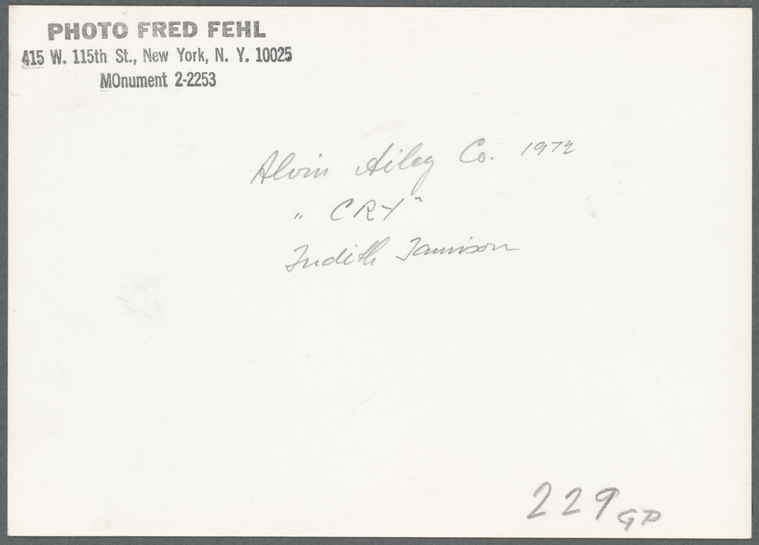 PHOTO FRED FEHL
415 W. 115th St., New York, N. Y. 10025
MOnument 2-2253
Alvin Ailey Co. 1972
" CRY"
Judith Jamison
229 GP